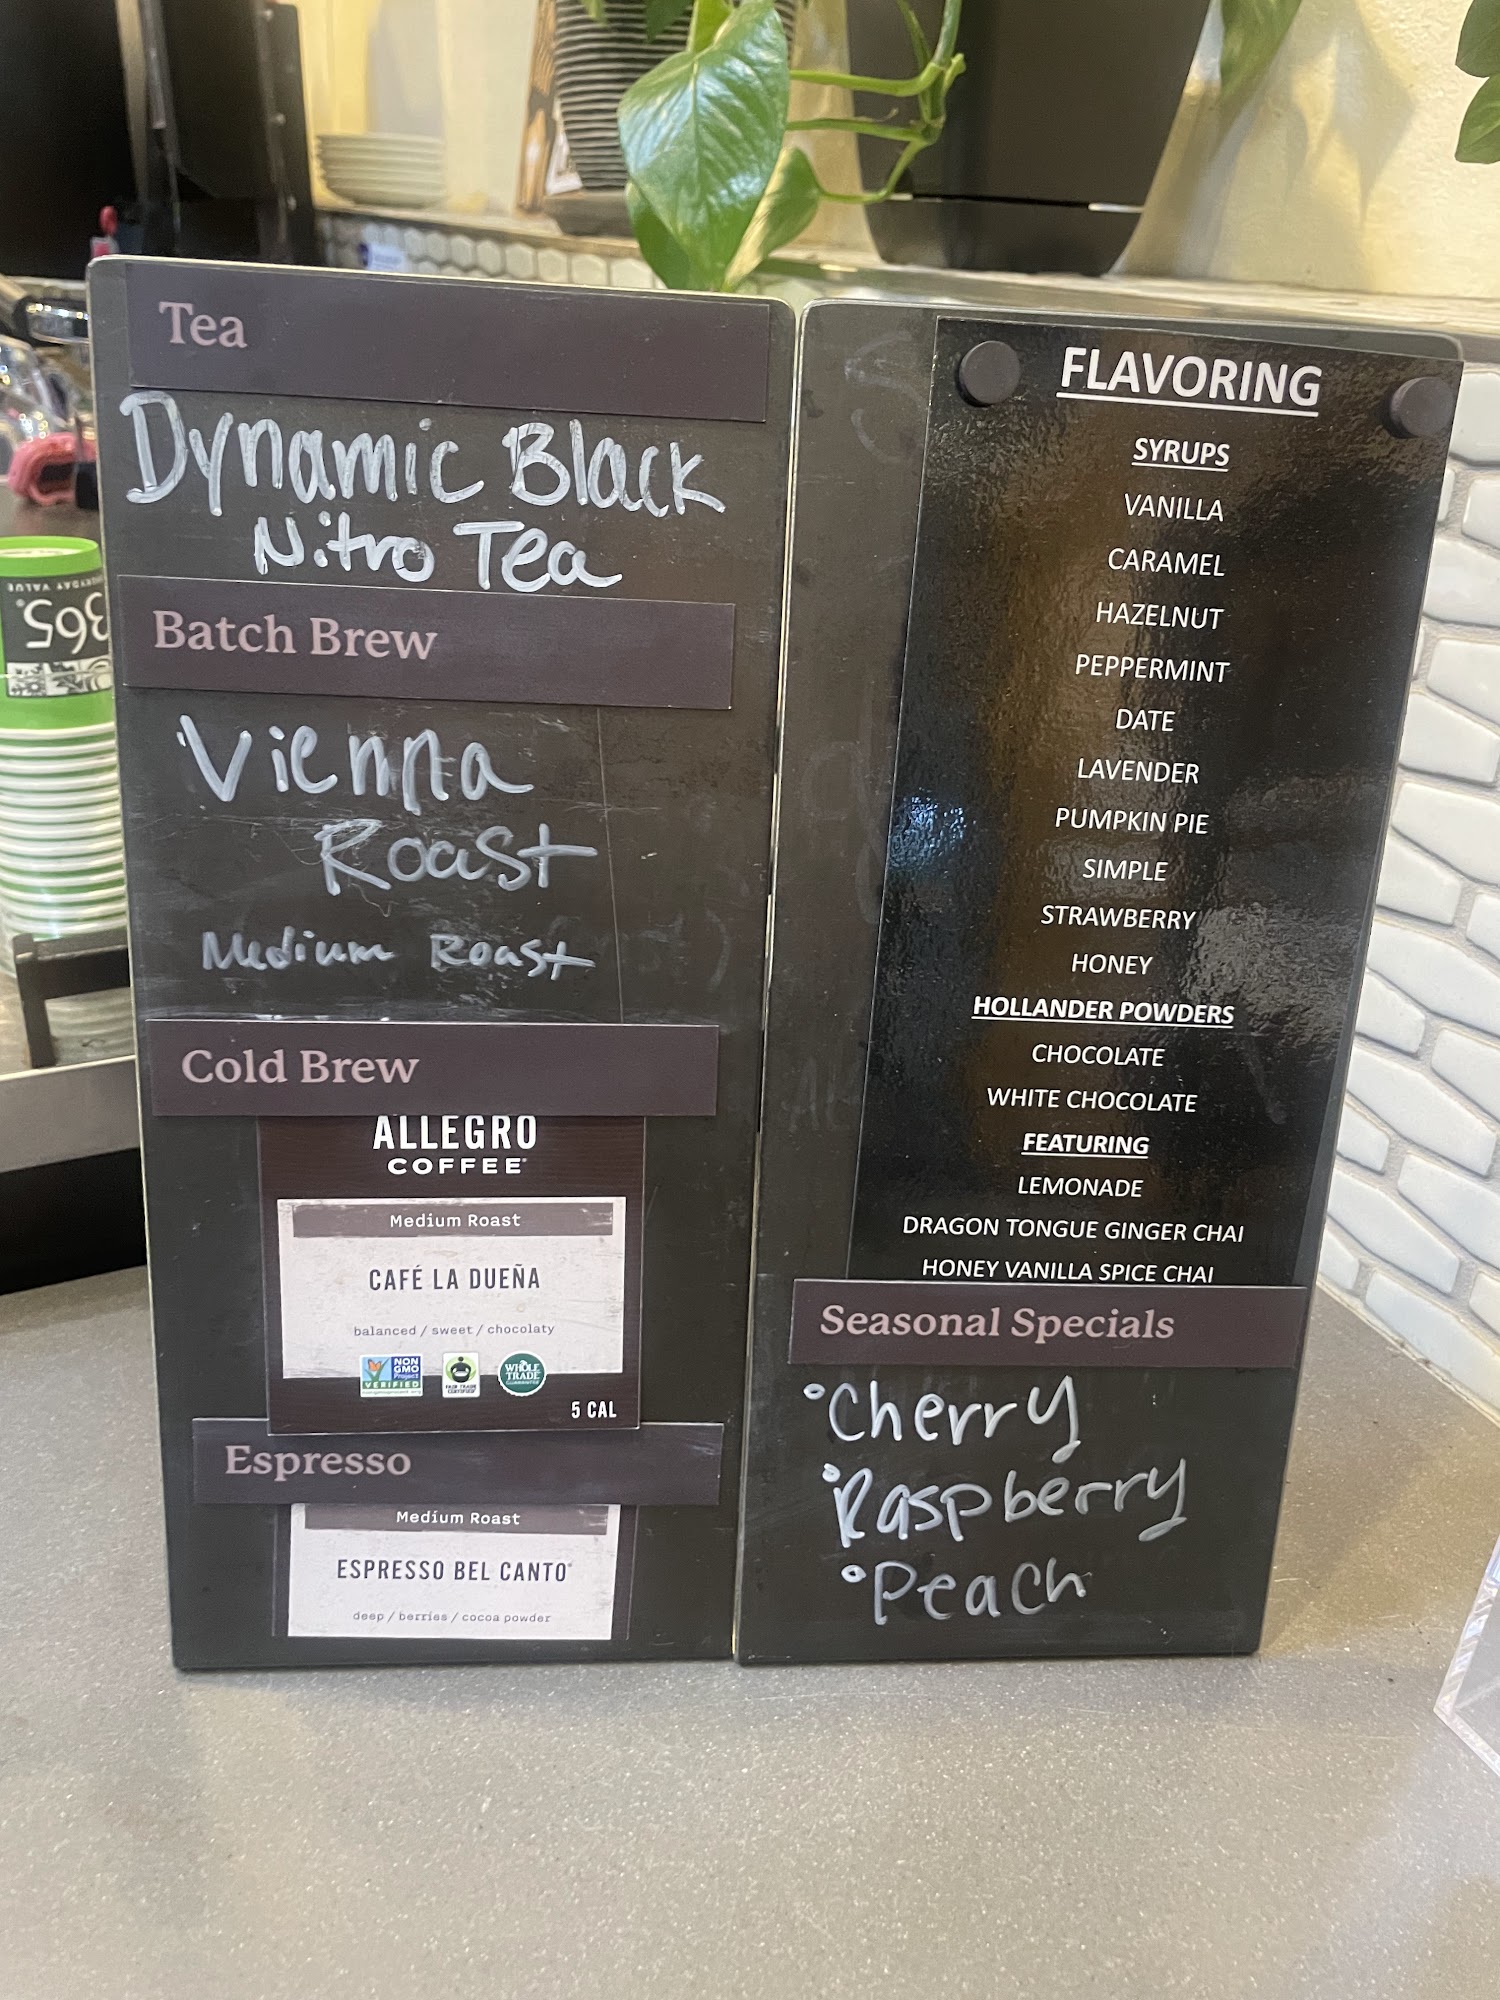 Tea
Dynamic Black
Nitro Tea
Batch Brew
Vienna
Roast
Medium Roast
Cold Brew
ALLEGRO
COFFEE
Medium Roast
CAFÉ LA DUEÑA
balanced / sweet / chocolaty
NON
GMO
Project
VERIFIED
FAIR TRADE
CERTIFIED
WHOLE
TRADE
GUARANTEE
5 CAL
Espresso
Medium Roast
ESPRESSO BEL CANTO
deep / berries / cocoa powder
FLAVORING
SYRUPS
VANILLA
CARAMEL
HAZELNUT
PEPPERMINT
DATE
LAVENDER
PUMPKIN PIE
SIMPLE
STRAWBERRY
HONEY
HOLLANDER POWDERS
CHOCOLATE
WHITE CHOCOLATE
FEATURING
LEMONADE
DRAGON TONGUE GINGER CHAI
HONEY VANILLA SPICE CHAI
Seasonal Specials
•Cherry
•Raspberry
•Peach
365
VALUE